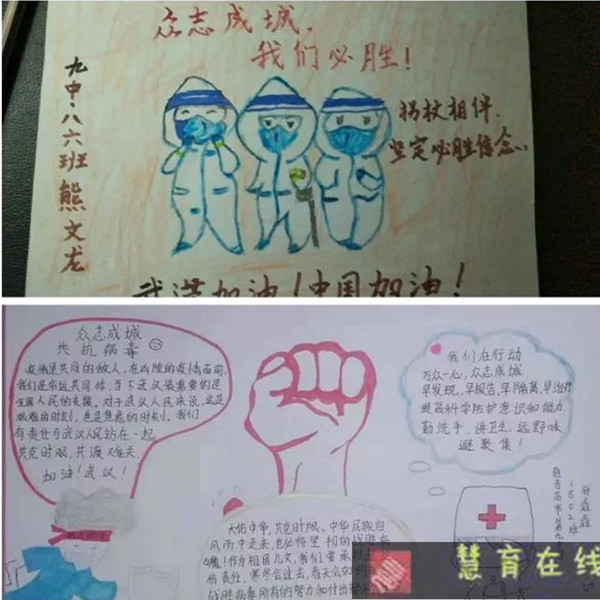 众志成城，
我们必胜！
九中·八六班 熊文龙
拐杖相伴.
坚定必胜信念..
武汉加油！中国加油！
众志成城
共抗病毒
疫情是共同的敌人，在凶险的疫情面前，
我们是命运共同体，当下武汉最重要的是
全国人民的支援，对于武汉人民来说，这是
艰难的时刻，也是焦虑的时刻。我们
有责任与武汉人民站在一起
共克时艰，共渡难关
加油！武汉！
我们在行动
万众一心，众志成城
早发现，早报告，早隔离，早治疗
提高科学防护意识和能力
勤洗手，讲卫生，远野味
避聚集！
1802班
大佑中华，共克时艰。中华民族自
风雨中走来，也必将坚韧的战胜病
魔！作为祖国儿女，我们要承担
份责任，寒冬会过去，春天会如约
战胜病毒所有的努力和付出
慧育在线